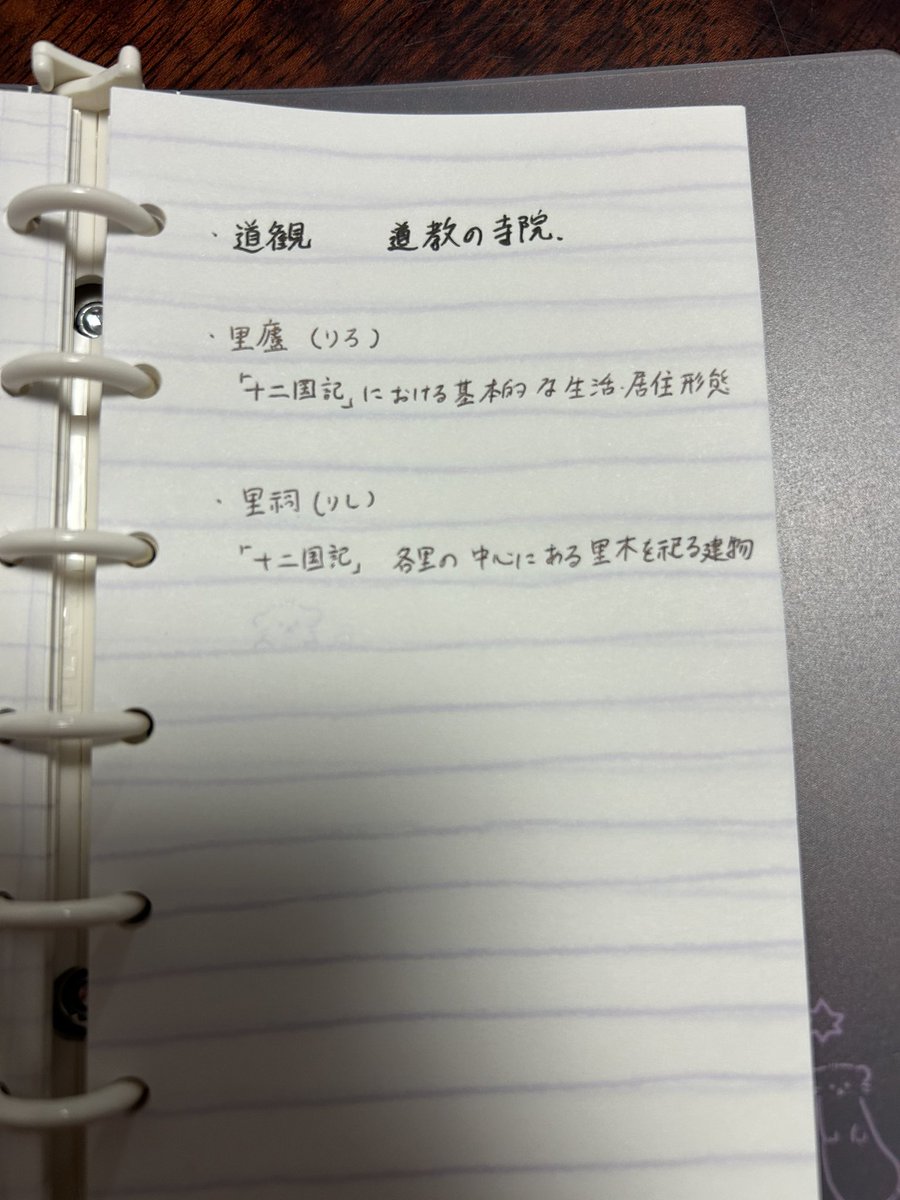 ・道観 道教の寺院.
・里廬(りろ)
「十二国記」における基本的な生活・居住形態
・里祠(りし)
「十二国記」 各里の中心にある里木を祀る建物